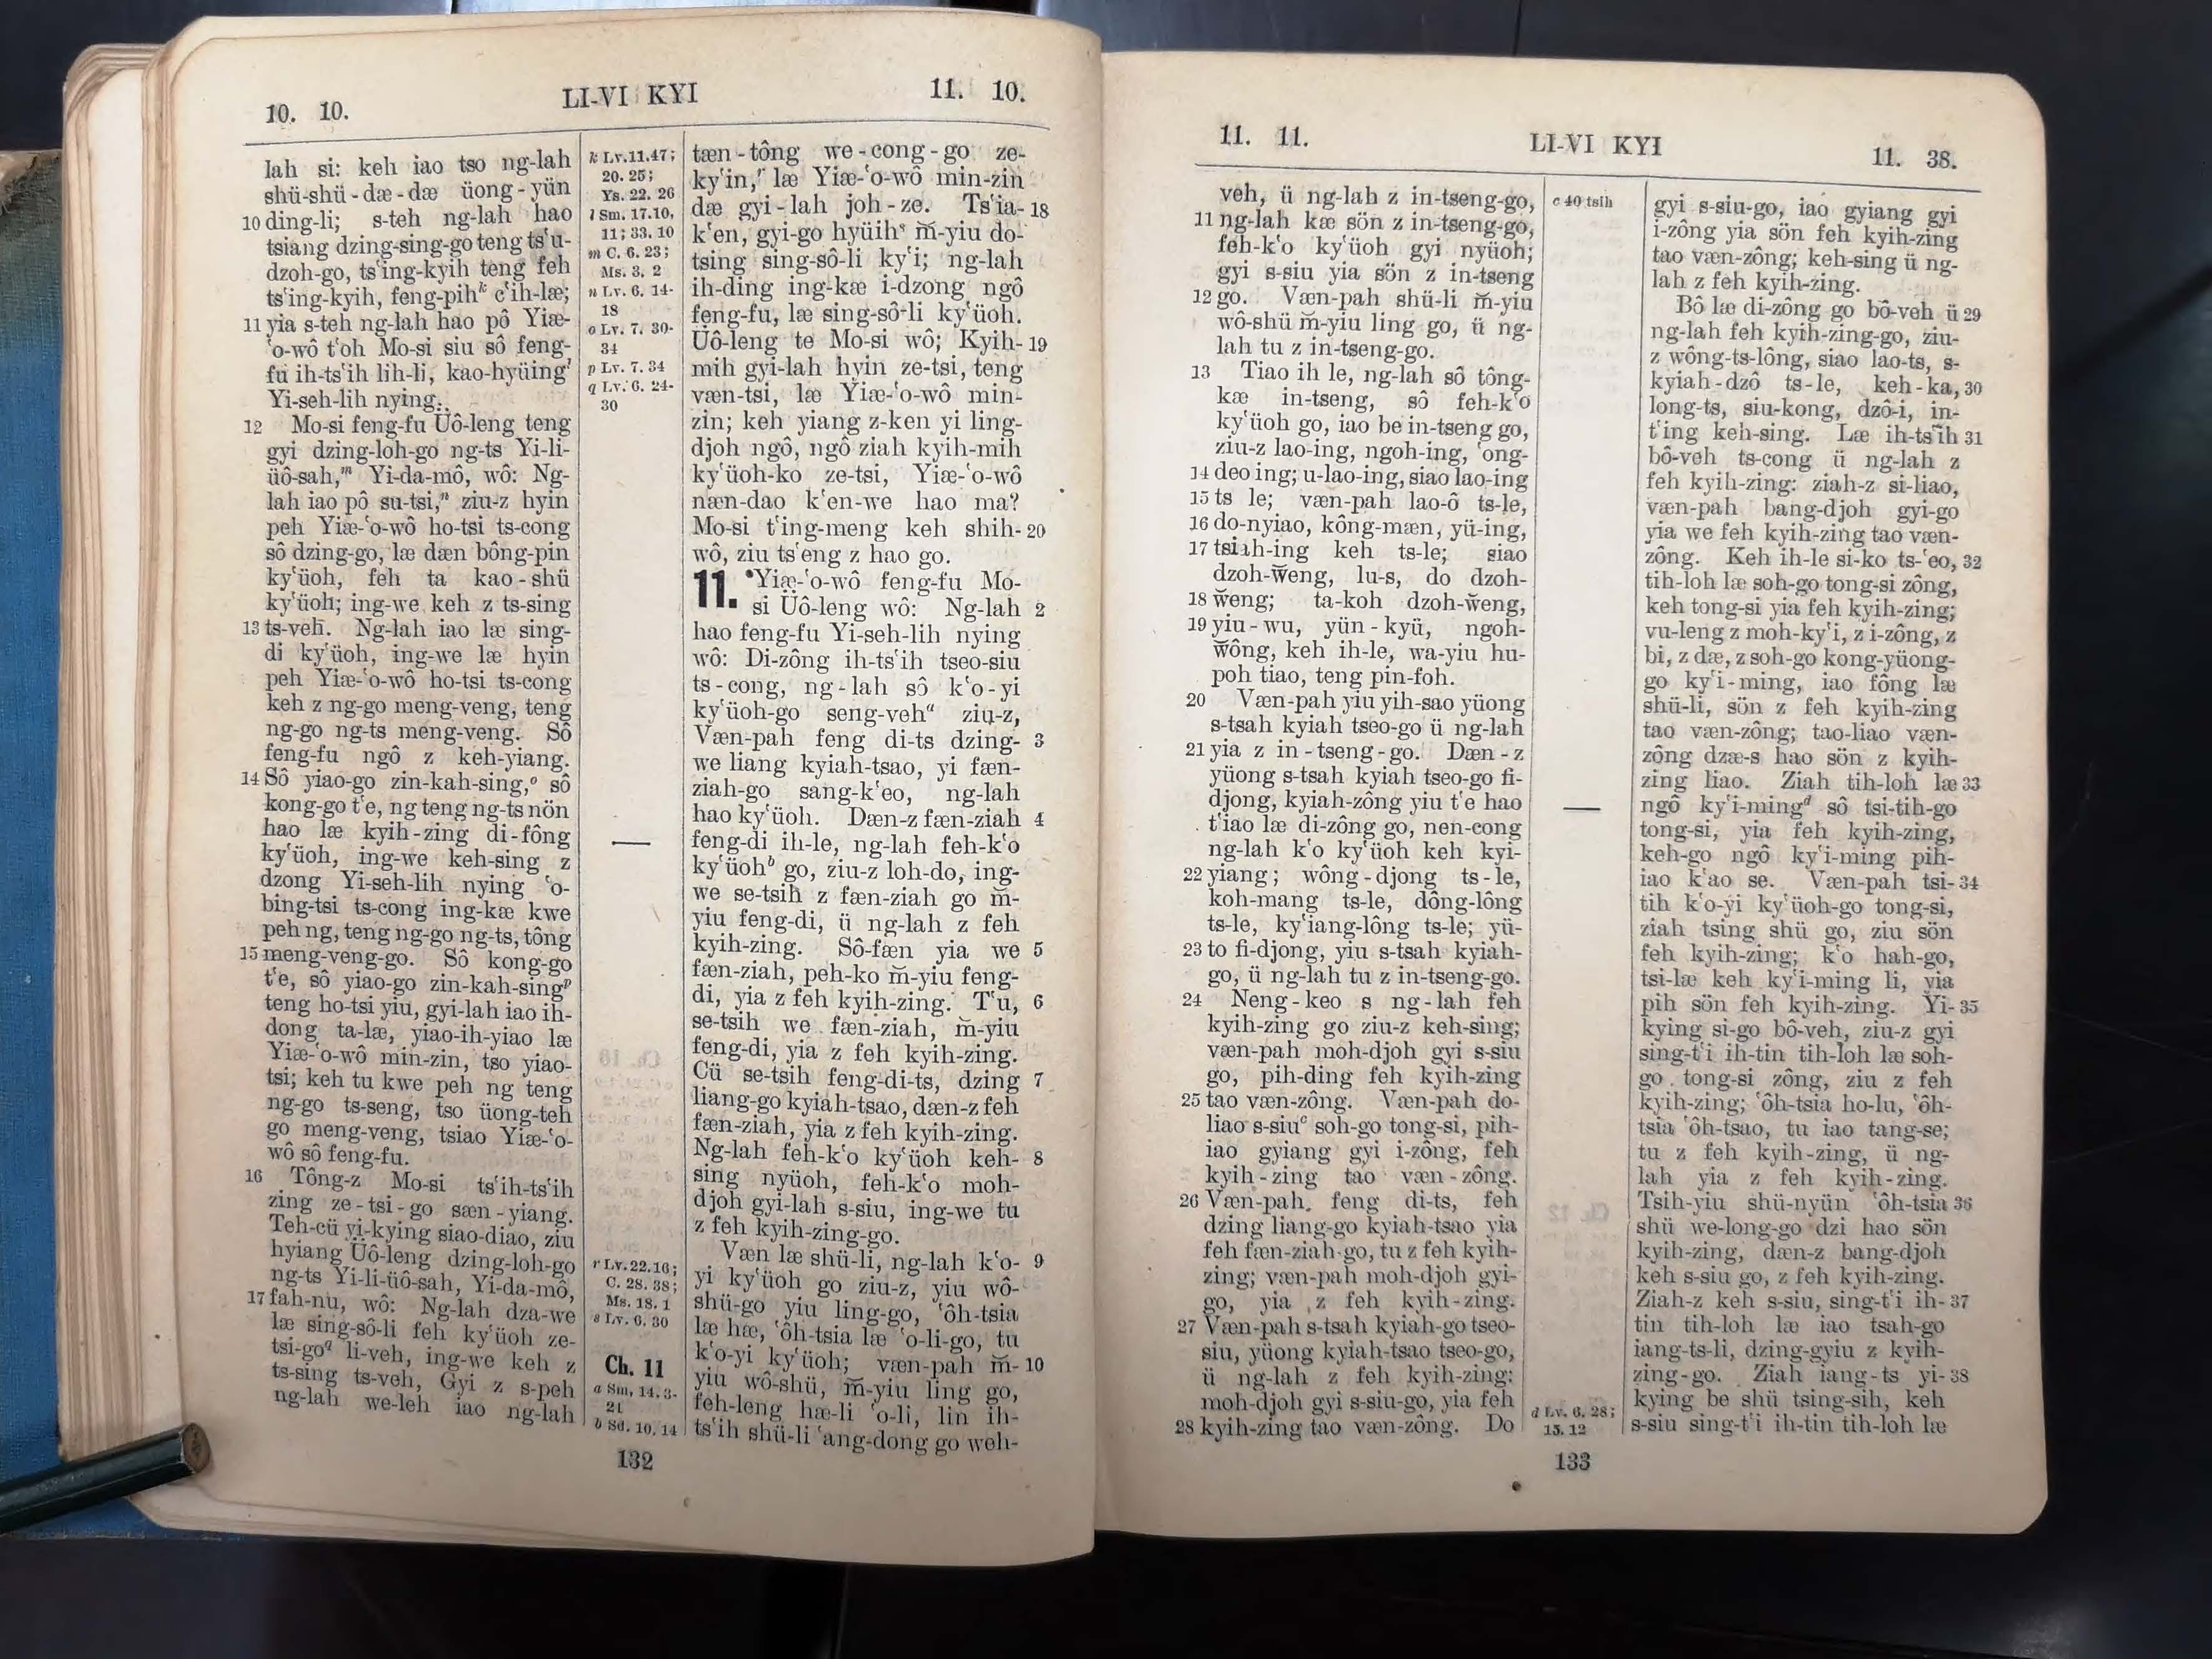 10. 10.
LI-VI KYI
11. 10.
lah si: keh iao tso ng-lah
shü-shü-dæ-dæ üong-yün
10 ding-li; s-teh ng-lah hao
tsiang dzing-sing-go teng tsʻu-
dzoh-go, tsʻing-kyih teng feh
tsʻing-kyih, feng-pihᵏ cʻih-læ;
11 yia s-teh ng-lah hao pô Yiæ-
ʻo-wô tʻoh Mo-si siu sô feng-
fu ih-tsʻih lih-li, kao-hyüingˡ
Yi-seh-lih nying.
12 Mo-si feng-fu Üô-leng teng
gyi dzing-loh-go ng-ts Yi-li-
üô-sah,ᵐ Yi-da-mô, wô: Ng-
lah iao pô su-tsi,ⁿ ziu-z hyin
peh Yiæ-ʻo-wô ho-tsi ts-cong
sô dzing-go, læ dæn bông-pin
kyʻüoh, feh ta kao-shü
kyʻüoh; ing-we keh z ts-sing
13 ts-veh. Ng-lah iao læ sing-
di kyʻüoh, ing-we læ hyin
peh Yiæ-ʻo-wô ho-tsi ts-cong
keh z ng-go meng-veng, teng
ng-go ng-ts meng-veng. Sô
feng-fu ngô z keh-yiang.
14 Sô yiao-go zin-kah-sing,ᵒ sô
kong-go tʻe, ng teng ng-ts nön
hao læ kyih-zing di-fông
kyʻüoh, ing-we keh-sing z
dzong Yi-seh-lih nying ʻo-
bing-tsi ts-cong ing-kæ kwe
peh ng, teng ng-go ng-ts, tông
15 meng-veng-go. Sô kong-go
tʻe, sô yiao-go zin-kah-singᵖ
teng ho-tsi yiu, gyi-lah iao ih-
dong ta-læ, yiao-ih-yiao læ
Yiæ-ʻo-wô min-zin, tso yiao-
tsi; keh tu kwe peh ng teng
ng-go ts-seng, tso üong-teh
go meng-veng, tsiao Yiæ-ʻo-
wô sô feng-fu.
16 Tông-z Mo-si tsʻih-tsʻih
zing ze-tsi-go sæn-yiang.
Teh-cü yi-kying siao-diao, ziu
hyiang Üô-leng dzing-loh-go
ng-ts Yi-li-üô-sah, Yi-da-mô,
17 fah-nu, wô: Ng-lah dza-we
læ sing-sô-li feh kyʻüoh ze-
tsi-go𐞥 li-veh, ing-we keh z
ts-sing ts-veh, Gyi z s-peh
ng-lah we-leh iao ng-lah
k Lv. 11.47;
20. 25;
Ys. 22. 26
l Sm. 17.10,
11; 33. 10
m C. 6. 23;
Ms. 3. 2
n Lv. 6. 14-
18
o Lv. 7. 30-
34
p Lv. 7. 34
q Lv. 6. 24-
30
r Lv. 22.16;
C. 28. 38;
Ms. 18. 1
s Lv. 6. 30
Ch. 11
a Sm. 14. 3-
21
b Sd. 10. 14
tæn-tông we-cong-go ze-
kyʻin,ʳ læ Yiæ-ʻo-wô min-zin
dæ gyi-lah joh-ze. Tsʻia- 18
kʻen, gyi-go hyüihˢ m̆-yiu do-
tsing sing-sô-li kyʻi; ng-lah
ih-ding ing-kæ i-dzong ngô
feng-fu, læ sing-sô-li kyʻüoh.
Üô-leng te Mo-si wô; Kyih- 19
mih gyi-lah hyin ze-tsi, teng
væn-tsi, læ Yiæ-ʻo-wô min-
zin; keh yiang z-ken yi ling-
djoh ngô, ngô ziah kyih-mih
kyʻüoh-ko ze-tsi, Yiæ-ʻo-wô
næn-dao kʻen-we hao ma?
Mo-si tʻing-meng keh shih- 20
wô, ziu tsʻeng z hao go.
11. Yiæ-ʻo-wô feng-fu Mo-
si Üô-leng wô: Ng-lah 2
hao feng-fu Yi-seh-lih nying
wô: Di-zông ih-tsʻih tseo-siu
ts-cong, ng-lah sô kʻo-yi
kyʻüoh-go seng-vehᵃ ziu-z,
Væn-pah feng di-ts dzing- 3
we liang kyiah-tsao, yi fæn-
ziah-go sang-kʻeo, ng-lah
hao kyʻüoh. Dæn-z fæn-ziah 4
feng-di ih-le, ng-lah feh-kʻo
kyʻüohᵇ go, ziu-z loh-do, ing-
we se-tsih z fæn-ziah go m̆-
yiu feng-di, ü ng-lah z feh
kyih-zing. Sô-fæn yia we 5
fæn-ziah, peh-ko m̆-yiu feng-
di, yia z feh kyih-zing. Tʻu, 6
se-tsih we fæn-ziah, m̆-yiu
feng-di, yia z feh kyih-zing.
Cü se-tsih feng-di-ts, dzing 7
liang-go kyiah-tsao, dæn-z feh
fæn-ziah, yia z feh kyih-zing.
Ng-lah feh-kʻo kyʻüoh keh- 8
sing nyüoh, feh-kʻo moh-
djoh gyi-lah s-siu, ing-we tu
z feh kyih-zing-go.
Væn læ shü-li, ng-lah kʻo- 9
yi kyʻüoh go ziu-z, yiu wô-
shü-go yiu ling-go, ʻôh-tsia
læ hæ, ʻôh-tsia læ ʻo-li-go, tu
kʻo-yi kyʻüoh; væn-pah m̆- 10
yiu wô-shü, m̆-yiu ling go,
feh-leng hæ-li ʻo-li, lin ih-
tsʻih shü-li ʻang-dong go weh-
132
11. 11.
LI-VI KYI
11. 38.
veh, ü ng-lah z in-tseng-go,
11 ng-lah kæ sön z in-tseng-go,
feh-kʻo kyʻüoh gyi nyüoh;
gyi s-siu yia sön z in-tseng
12 go. Væn-pah shü-li m̆-yiu
wô-shü m̆-yiu ling go, ü ng-
lah tu z in-tseng-go.
13 Tiao ih le, ng-lah sô tông-
kæ in-tseng, sô feh-kʻo
kyʻüoh go, iao be in-tseng go,
ziu-z lao-ing, ngoh-ing, ʻong-
14 deo ing; u-lao-ing, siao lao-ing
15 ts le; væn-pah lao-ô ts-le,
16 do-nyiao, kông-mæn, yü-ing,
17 tsiah-ing keh ts-le; siao
dzoh-w̆eng, lu-s, do dzoh-
18 w̆eng; ta-koh dzoh-w̆eng,
19 yiu-wu, yün-kyü, ngoh-
w̆ông, keh ih-le, wa-yiu hu-
poh tiao, teng pin-foh.
20 Væn-pah yiu yih-sao yüong
s-tsah kyiah tseo-go ü ng-lah
21 yia z in-tseng-go. Dæn-z
yüong s-tsah kyiah tseo-go fi-
djong, kyiah-zông yiu tʻe hao
tʻiao læ di-zông go, nen-cong
ng-lah kʻo kyʻüoh keh kyi-
22 yiang; wông-djong ts-le,
koh-mang ts-le, dông-lông
ts-le, kyʻiang-lông ts-le; yü-
23 to fi-djong, yiu s-tsah kyiah-
go, ü ng-lah tu z in-tseng-go.
24 Neng-keo s ng-lah feh
kyih-zing go ziu-z keh-sing;
væn-pah moh-djoh gyi s-siu
go, pih-ding feh kyih-zing
25 tao væn-zông. Væn-pah do-
liao s-siuᶜ soh-go tong-si, pih-
iao gyiang gyi i-zông, feh
kyih-zing tao væn-zông.
26 Væn-pah feng di-ts, feh
dzing liang-go kyiah-tsao yia
feh fæn-ziah-go, tu z feh kyih-
zing; væn-pah moh-djoh gyi-
go, yia z feh kyih-zing.
27 Væn-pah s-tsah kyiah-go tseo-
siu, yüong kyiah-tsao tseo-go,
ü ng-lah z feh kyih-zing:
moh-djoh gyi s-siu-go, yia feh
28 kyih-zing tao væn-zông. Do
c 40 tsih
d Lv. 6. 28;
15. 12
gyi s-siu-go, iao gyiang gyi
i-zông yia sön feh kyih-zing
tao væn-zông; keh-sing ü ng-
lah z feh kyih-zing.
Bô læ di-zông go bô-veh ü 29
ng-lah feh kyih-zing-go, ziu-
z wông-ts-lông, siao lao-ts, s-
kyiah-dzô ts-le, keh-ka, 30
long-ts, siu-kong, dzô-i, in-
tʻing keh-sing. Læ ih-tsʻih 31
bô-veh ts-cong ü ng-lah z
feh kyih-zing: ziah-z si-liao,
væn-pah bang-djoh gyi-go
yia we feh kyih-zing tao væn-
zông. Keh ih-le si-ko ts-ʻeo, 32
tih-loh læ soh-go tong-si zông,
keh tong-si yia feh kyih-zing;
vu-leng z moh-kyʻi, z i-zông, z
bi, z dæ, z soh-go kong-yüong-
go kyʻi-ming, iao fông læ
shü-li, sön z feh kyih-zing
tao væn-zông; tao-liao væn-
zông dzæ-s hao sön z kyih-
zing liao. Ziah tih-loh læ 33
ngô kyʻi-mingᵈ sô tsi-tih-go
tong-si, yia feh kyih-zing,
keh-go ngô kyʻi-ming pih-
iao kʻao se. Væn-pah tsi- 34
tih kʻo-yi kyʻüoh-go tong-si,
ziah tsing shü go, ziu sön
feh kyih-zing; kʻo hah-go,
tsi-læ keh kyʻi-ming li, yia
pih sön feh kyih-zing. Yi- 35
kying si-go bô-veh, ziu-z gyi
sing-tʻi ih-tin tih-loh læ soh-
go tong-si zông, ziu z feh
kyih-zing; ʻôh-tsia ho-lu, ʻôh-
tsia ʻôh-tsao, tu iao tang-se;
tu z feh kyih-zing, ü ng-
lah yia z feh kyih-zing.
Tsih-yiu shü-nyün ʻôh-tsia 36
shü we-long-go dzi hao sön
kyih-zing, dæn-z bang-djoh
keh s-siu go, z feh kyih-zing.
Ziah-z keh s-siu, sing-tʻi ih- 37
tin tih-loh læ iao tsah-go
iang-ts-li, dzing-gyiu z kyih-
zing-go. Ziah iang-ts yi- 38
kying be shü tsing-sih, keh
s-siu sing-tʻi ih-tin tih-loh læ
133